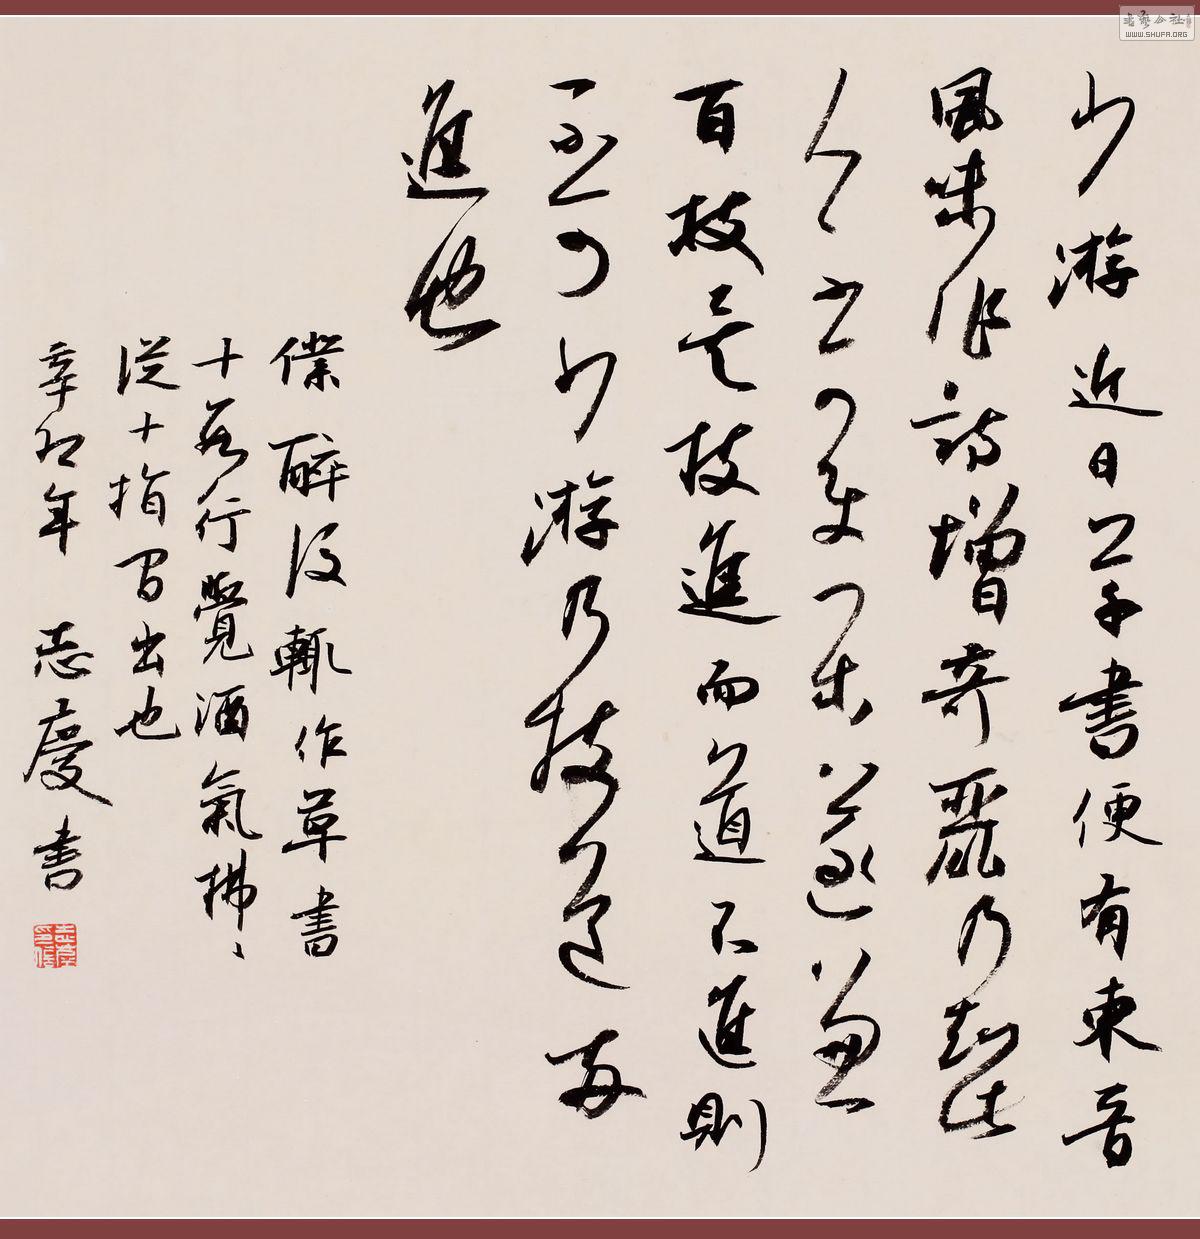 少游近日草書便有東晉
風味作詩增奇麗乃知此
人不可使閑遂兼
百技矣技進而道不進則
不可少游乃技道兩
進也
僕醉後輒作草書
十數行覺酒氣拂〻
從十指間出也
辛卯年 志慶書
书艺公社
WWW.SHUFA.ORG